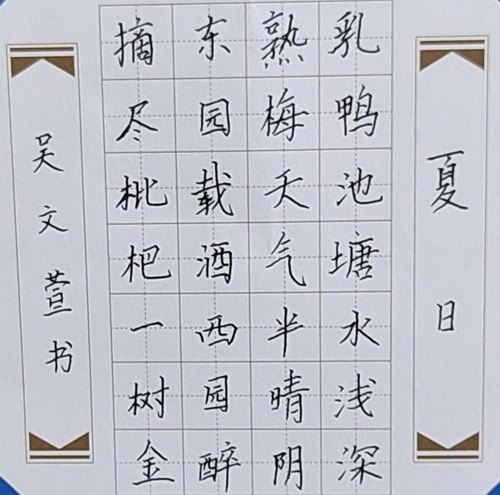 夏日
乳鸭池塘水浅深
熟梅天气半晴阴
东园载酒西园醉
摘尽枇杷一树金
吴文萱书